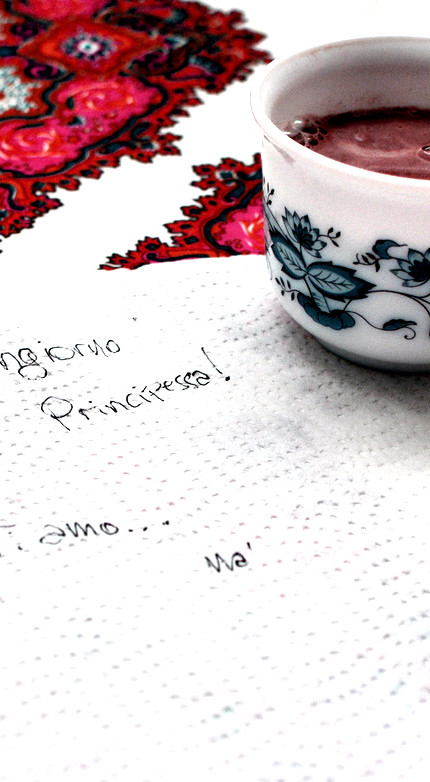 ngiorno
Principessa!
. amo...
ma'